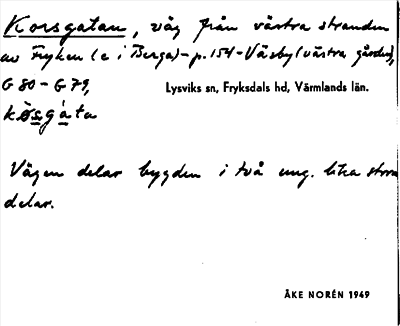 Korsgatan, väg från västra stranden
av Fryken (e i Berga) - p. 154 - Väsby (västra gården),
G 80 - G 79, Lysviks sn, Fryksdals hd, Värmlands län.
Vägen delar bygden i två ung. lika stora
delar.
ÅKE NORÉN 1949